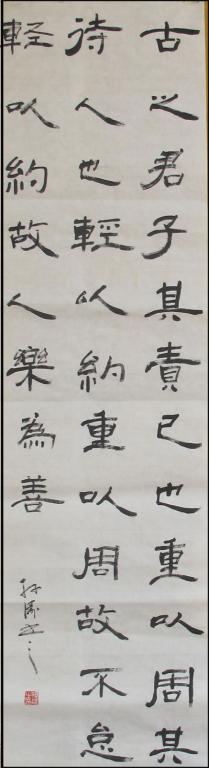 古之君子其責己也重以周其
待人也輕以約重以周故不怠
輕以約故人樂為善